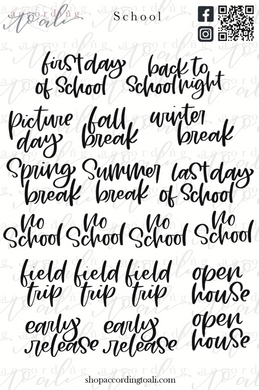 according
to ali
School
first day
of School
back to
School night
picture
day
fall
break
winter
break
Spring
break
Summer
break
last day
of School
no
School
no
School
no
School
no
School
field
trip
field
trip
field
trip
open
house
early
release
early
release
open
house
shopaccordingtoali.com